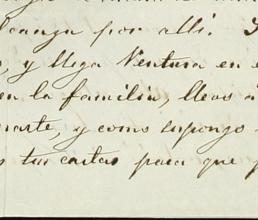 por alli.
y llega Ventura en e
en la familia, lleva a
marte, y como supongo
tus cartas para que